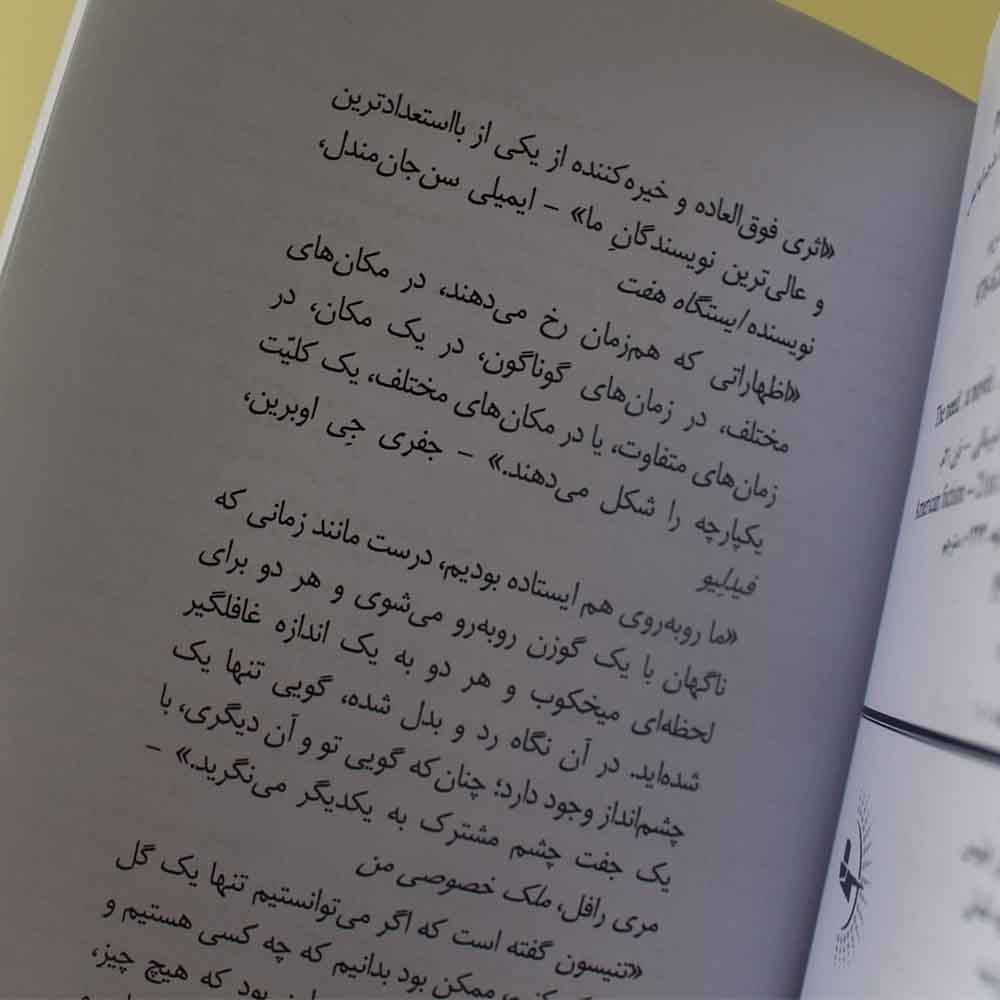 «اثری فوق‌العاده و خیره‌کننده از یکی از بااستعدادترین
و عالی‌ترین نویسندگانِ ما» – ایمیلی سن‌جان‌مندل،
نویسنده ایستگاه هفت
«اظهاراتی که هم‌زمان رخ می‌دهند، در مکان‌های
مختلف، در زمان‌های گوناگون، در یک مکان، در
زمان‌های متفاوت، یا در مکان‌های مختلف، یک کلیّت
یکپارچه را شکل می‌دهند.» – جفری جِی اوبرین،
فیدلیو
«ما روبه‌روی هم ایستاده بودیم، درست مانند زمانی که
ناگهان با یک گوزن روبه‌رو می‌شوی و هر دو برای
لحظه‌ای میخکوب و هر دو به یک اندازه غافلگیر
شده‌اید. در آن نگاه رد و بدل شده، گویی تنها یک
چشم‌انداز وجود دارد؛ چنان‌که گویی تو و آن دیگری، با
یک جفت چشم مشترک به یکدیگر می‌نگرید.» –
مری رافل، ملک خصوصی من
«تنیسون گفته است که اگر می‌توانستیم تنها یک گل
ممکن بود بدانیم که چه کسی هستیم و
بود که هیچ چیز،
The need: a novel
American fiction -- 21